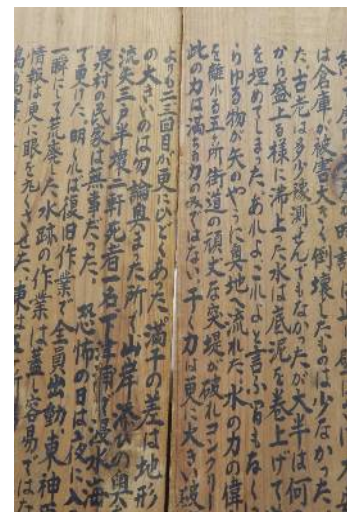 は倉庫が被害大き 倒壊したものは少なかった
た。古老は多少予測せんでもなかったが大半は何の
から盛上る様に沸上った水は底泥を巻上げて
を埋めてしまった、あれよこれよと言ふ間もなく
らゆる物が矢のやうに奥地へ流れた、水の力の偉
を離れる五ヶ所街道の頑丈な突堤が破れコンクリ
此の力は満ちる力のみではない 干く力は更に大きい破
よりも二三回目が更にひどくあった、満干の差は地形
の大きいのは勿論奥まった所で山岸添ひの奥
流失三戸半壊二軒死者一名下津浦は浸水
泉村の民家は無事だった。恐怖の日は夜に入
て更けた、明くれば復旧作業で全員出動東神
一瞬にして荒廃した水跡の作業は蓋し容易ではな
情報は更に眼を丸くさせた、東は五ヶ所